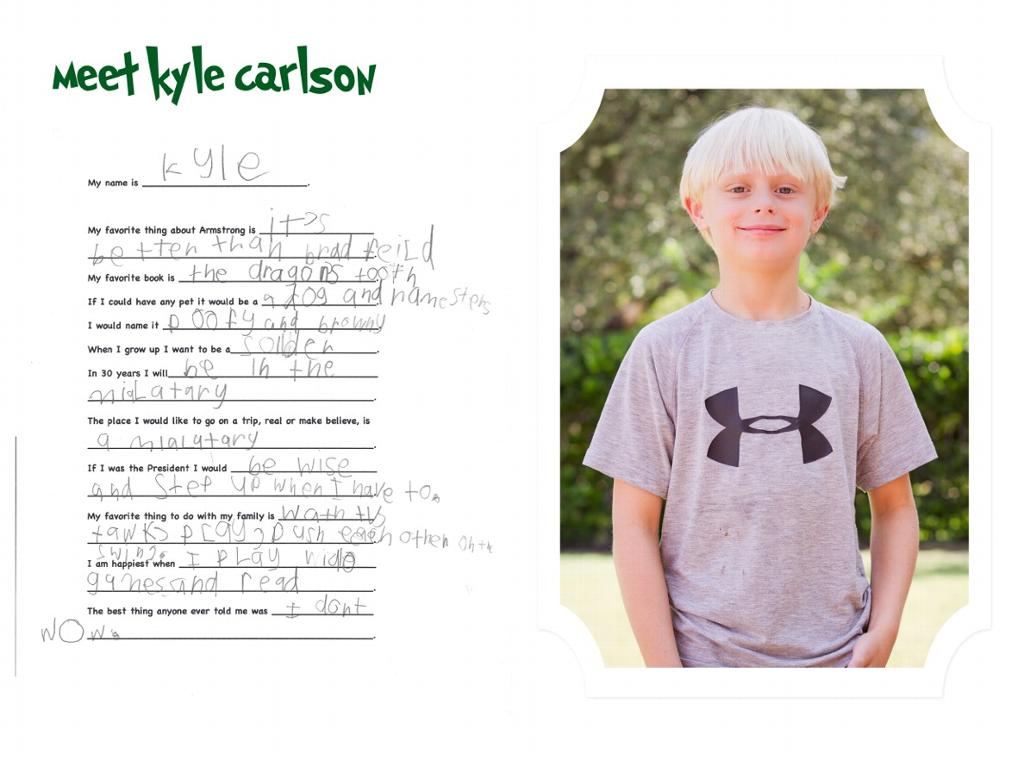 Meet Kyle Carlson
My name is Kyle.
My favorite thing about Armstrong is it's
better than bradfeild
My favorite book is the dragons tooth
If I could have any pet it would be a a dog and hamesters
I would name it poofy and browny
When I grow up I want to be a solder.
In 30 years I will be in the
milatary
The place I would like to go on a trip, real or make believe, is
a mialatary
If I was the President I would be wise
and step up when I have to.
My favorite thing to do with my family is wath tv,
tawks play, push eegh other on th
swing.
I am happiest when I play wido
games and read
The best thing anyone ever told me was I dont
now.